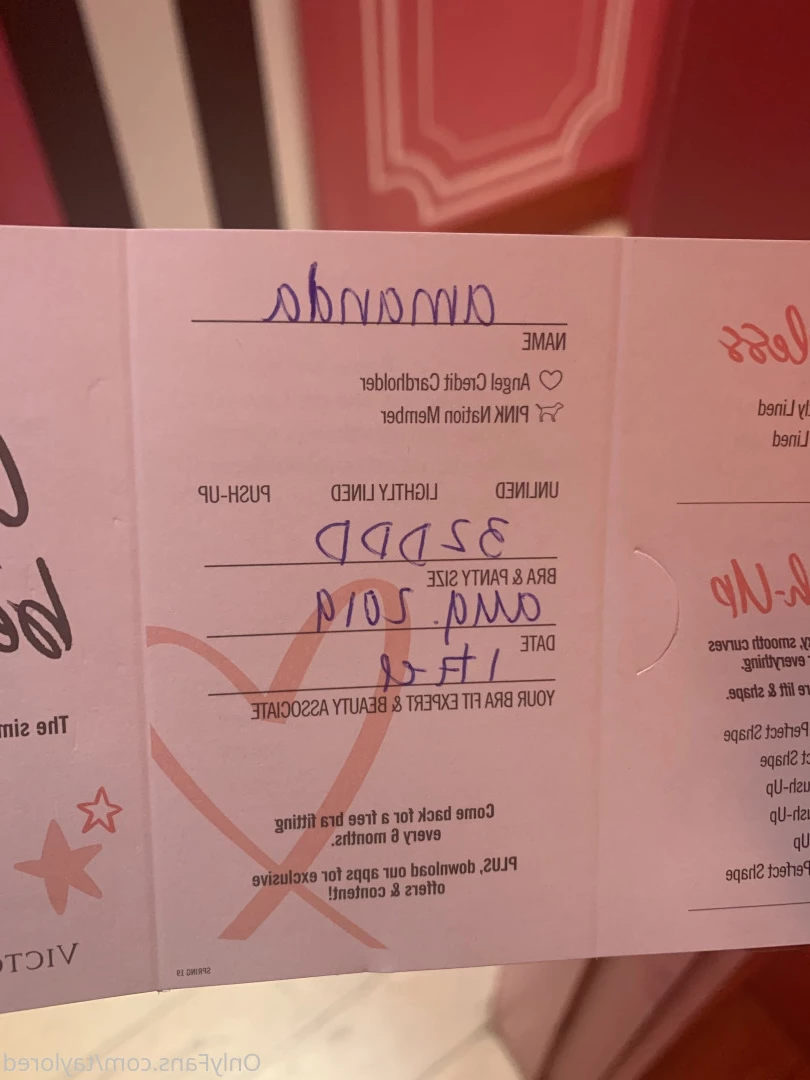 amanda
NAME
Angel Credit Cardholder
PINK Nation Member
UNLINED LIGHTLY LINED PUSH-UP
32DDD
BRA & PANTY SIZE
aug. 2019
DATE
YOUR BRA FIT EXPERT & BEAUTY ASSOCIATE
Come back for a free bra fitting
every 6 months.
PLUS, download our apps for exclusive
offers & content!
SPRING 19
less
ly Lined
Lined
h-Up
y, smooth curves
r everything.
re lift & shape.
Perfect Shape
ct Shape
ush-Up
ush-Up
Up
Perfect Shape
be
The sim
VICTO
OnlyFans.com/taylored